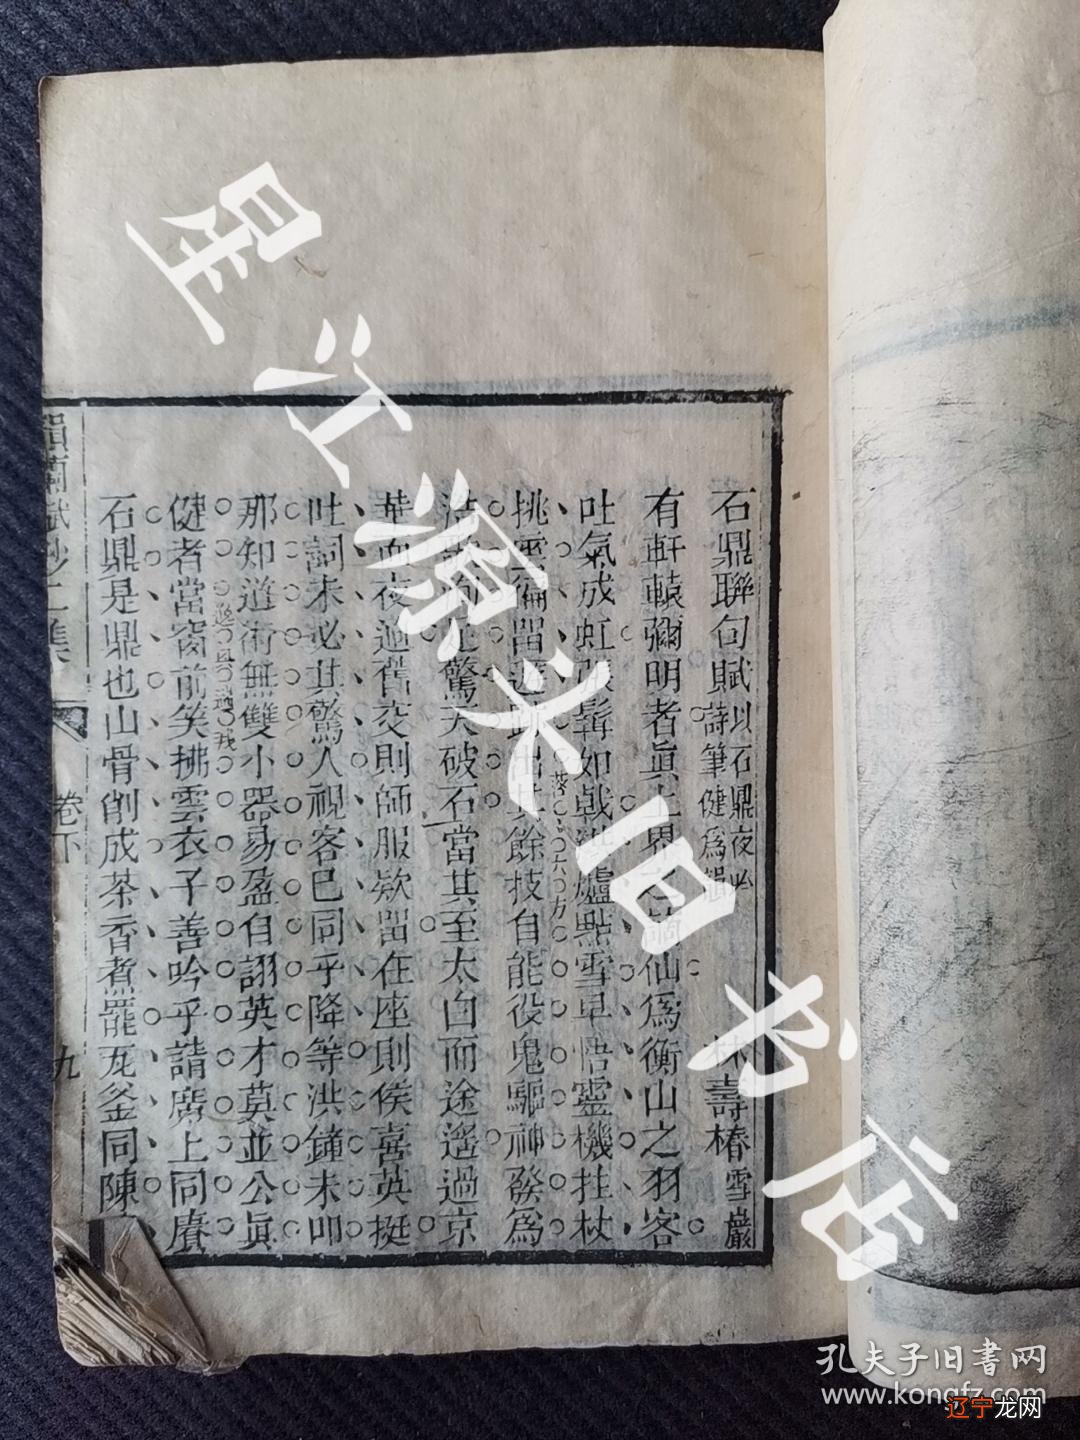 石鼎聯句賦以石鼎夜
詩筆健爲韻
壽椿雪巖
有軒轅彌明者眞上界之 仙爲衡山之羽客
吐氣成虹 髯如戟 爐點雪早悟靈機拄杖
挑雲偏留 出其餘技自能役鬼驅神發爲
驚天破石當其至太白而途遙過京
華而夜過舊交則師服欵留在座則侯喜英挺
吐詞未必其驚人視客已同乎降等洪鐘未叩
那知道術無雙小器易盈自詡英才莫並公眞
健者當窗前笑拂雲衣子善吟乎請席上同賡
石鼎是鼎也山骨削成茶香煮罷瓦釜同陳
落六方
逸風過我
韻蘭賦鈔二集
卷下
九
星江源头旧书店
孔夫子旧書网
www.kongfz.com
辽宁龙网